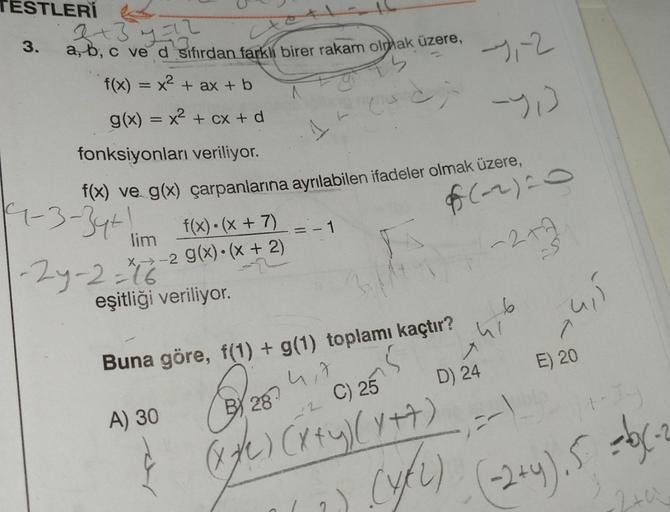 TESTLERİ
3. a, b, c ve d sıfırdan farklı birer rakam olmak üzere,
f(x) = x² + ax + b
g(x) = x² + cx + d
fonksiyonları veriliyor.
f(x) ve g(x) çarpanlarına ayrılabilen ifadeler olmak üzere,
lim x→-2 f(x)·(x + 7) / g(x)·(x + 2) = -1
eşitliği veriliyor.
Buna göre, f(1) + g(1) toplamı kaçtır?
A) 30 B) 28 C) 25 D) 24 E) 20
-y,-2
-y,3
f(-2)=0
-2y-2=16
(x+2)(x+y)(x+7) =-1
(x+2) (-2+y).5